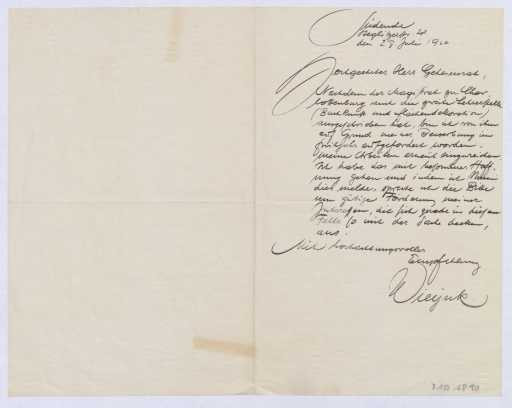 Südende
den 29 Juli 19
Hochgeehrter Herr Geheimrat,
Nachdem der Magistrat zu Char-
lottenburg nun die zweite Lehrerstelle
(Buchkunst und Flächendekoration)
ausgeschrieben hat, bin ich von ihm
auf Grund meiner Bewerbung im
Frühjahr aufgefordert worden,
meine Arbeiten erneut einzureichen
Ich habe das mit besonderer Hoff-
nung getan und indem ich Ihnen
dies melde, spreche ich die Bitte
um gütige Förderung meiner
die sich gerade in diesem
Falle so mit der Sache decken,
aus.
Mit hochachtungsvoller
Empfehlung
Wieynk